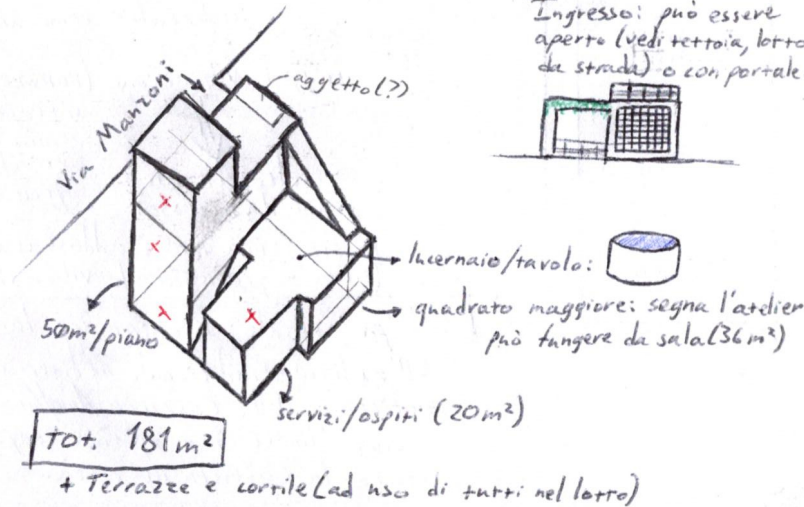 Ingresso: può essere
aperto (vedi tettoia, lotto
da strada) o con portale
aggetto (?)
Via Manzoni
lucernaio/tavolo:
quadrato maggiore: segna l'atelier
può fungere da sala (36 m²)
50m²/piano
servizi/ospiti (20 m²)
tot. 181 m²
+ Terrazze e cortile (ad uso di tutti nel lotto)